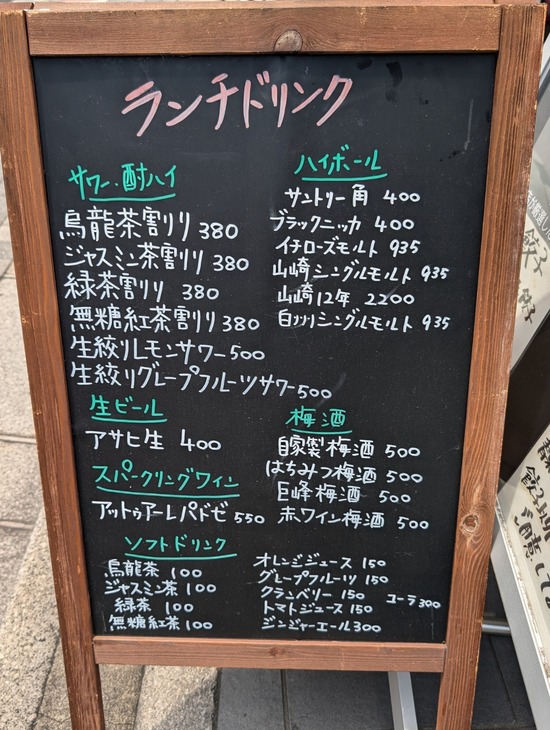 ランチドリンク
サワー・酎ハイ
烏龍茶割り 380
ジャスミン茶割り 380
緑茶割り 380
無糖紅茶割り 380
生絞りレモンサワー 500
生絞りグレープフルーツサワー 500
生ビール
アサヒ生 400
スパークリングワイン
アットゥアーレパドゼ 550
ハイボール
サントリー角 400
ブラックニッカ 400
イチローズモルト 935
山崎シングルモルト 935
山崎12年 2200
白州シングルモルト 935
梅酒
自家製梅酒 500
はちみつ梅酒 500
巨峰梅酒 500
赤ワイン梅酒 500
ソフトドリンク
烏龍茶 100
ジャスミン茶 100
緑茶 100
無糖紅茶 100
オレンジジュース 150
グレープフルーツ 150
クランベリー 150
トマトジュース 150
ジンジャーエール 300
コーラ 300
餃子